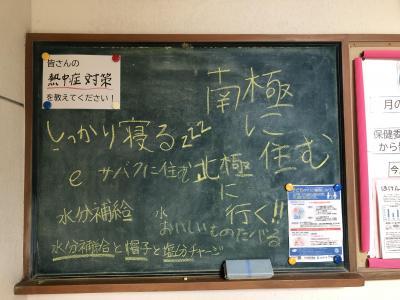 皆さんの
熱中症対策
を教えてください！
南極に住む
しっかり寝るzzz
e サバクに住む
北極に行く!!
水分補給
水
おいしいものたべる
水分補給と帽子と塩分チャージ
月の
保健委
から